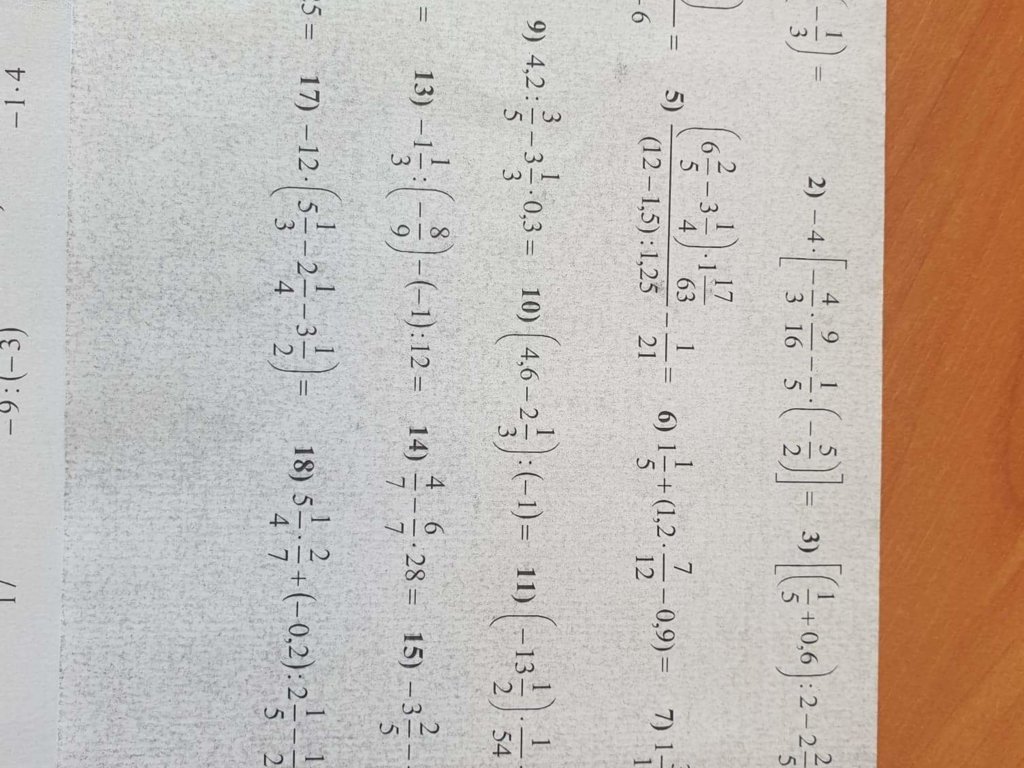 (−1/3) =   2) −4·[−4/3·9/16−1/5·(−5/2)] =   3) [(1/5+0,6):2−2 2/5
−6 =   5) ((6 2/5−3 1/4)·1 17/63)/((12−1,5):1,25)−1/21 =   6) 1 1/5+(1,2·7/12−0,9) =   7) 1
9) 4,2:3/5−3 1/3·0,3 =   10) (4,6−2 1/3):(−1) =   11) (−13 1/2)·1/54
=   13) −1 1/3:(−8/9)−(−1):12 =   14) −4/7−6/7·28 =   15) −3 2/5−
5 =   17) −12·(5 1/3−2 1/4−3 1/2) =   18) 5 1/4·2/7+(−0,2):2 1/5−1/2
4·1−   (−3):9−   1